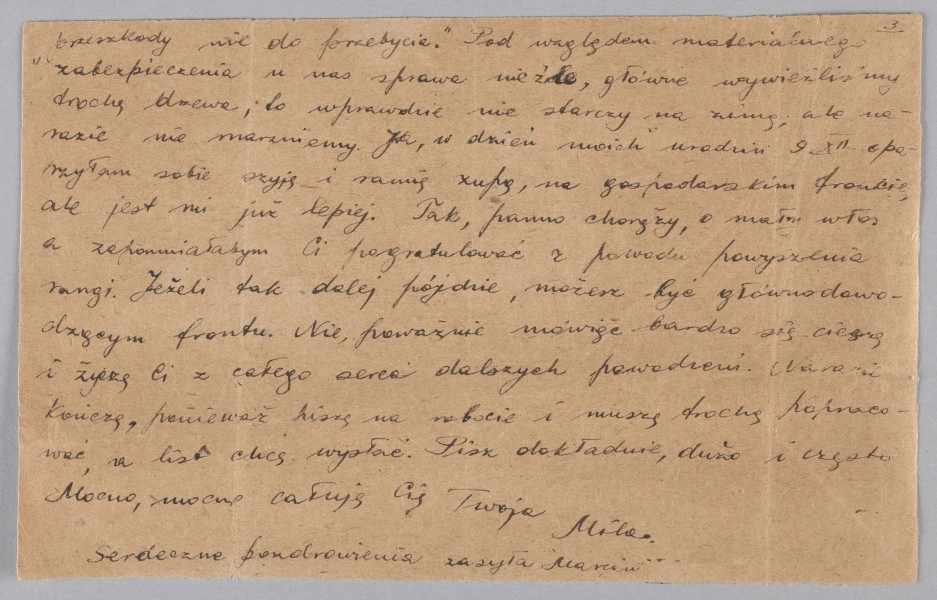 3
"brzeszkody nie do przebycia." Pod względem materialnego
zabezpieczenia u nas sprawa nieźle, główne wywieźliśmy
trochę drzewa; to wprawdzie nie starczy na zimę, ale na-
razie nie marzniemy. Ja, w dzień moich urodzin 9 XII opa-
rzyłam sobie szyję i ramię zupą, na gospodarskim froncie,
ale jest mi już lepiej. Tak, panno chorąży, o mały włos
a zapomniałabym Ci pogratulować z powodu powyszenia
rangi. Jeżeli tak dalej pójdzie, możesz być głównodowo-
dzącym frontu. Nie, poważnie mówiąc bardzo się cieszę
i życzę Ci z całego serca dalszych powodzeni. Narazie
kończę, ponieważ piszę na robocie i muszę trochę popraco-
wać, a list chcę wysłać. Pisz dokładnie, dużo i często
Mocno, mocno całuję Cię Twoja
Mila.
Serdeczne pozdrowienia zasyła Marcin